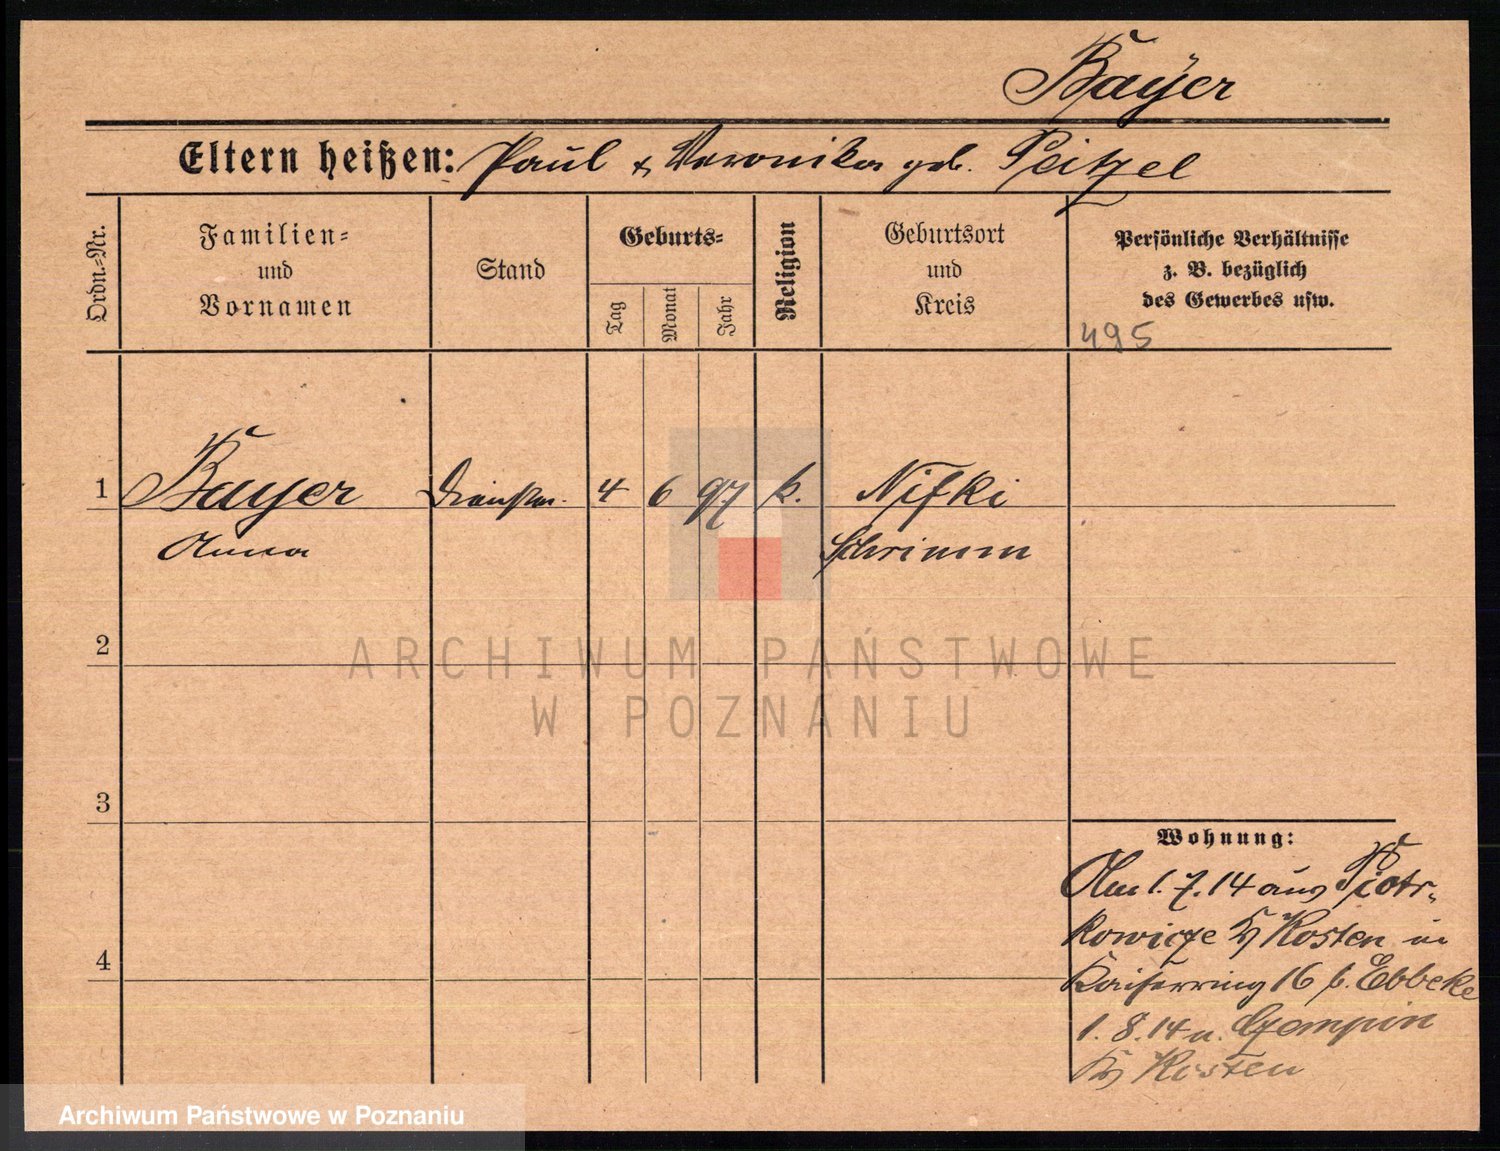 Bayer
Eltern heißen: Paul & Veronika geb. Peitzel
Ordn.-Nr.
Familien-
und
Vornamen
Stand
Geburts-
Tag
Monat
Jahr
Religion
Geburtsort
und
Kreis
Persönliche Verhältnisse
z. B. bezüglich
des Gewerbes usw.
495
1 Bayer 4 6 97 k. Nifki
Anna Schrimm
2
ARCHIWUM PAŃSTWOWE
W POZNANIU
3
Wohnung:
Am 1.7.14 aus Piotr-
kowicze Kr Kosten in
4
Kaiserring 16 b. Ebbeke
1.8.14 n. Czempin
Kr Kosten
Archiwum Państwowe w Poznaniu